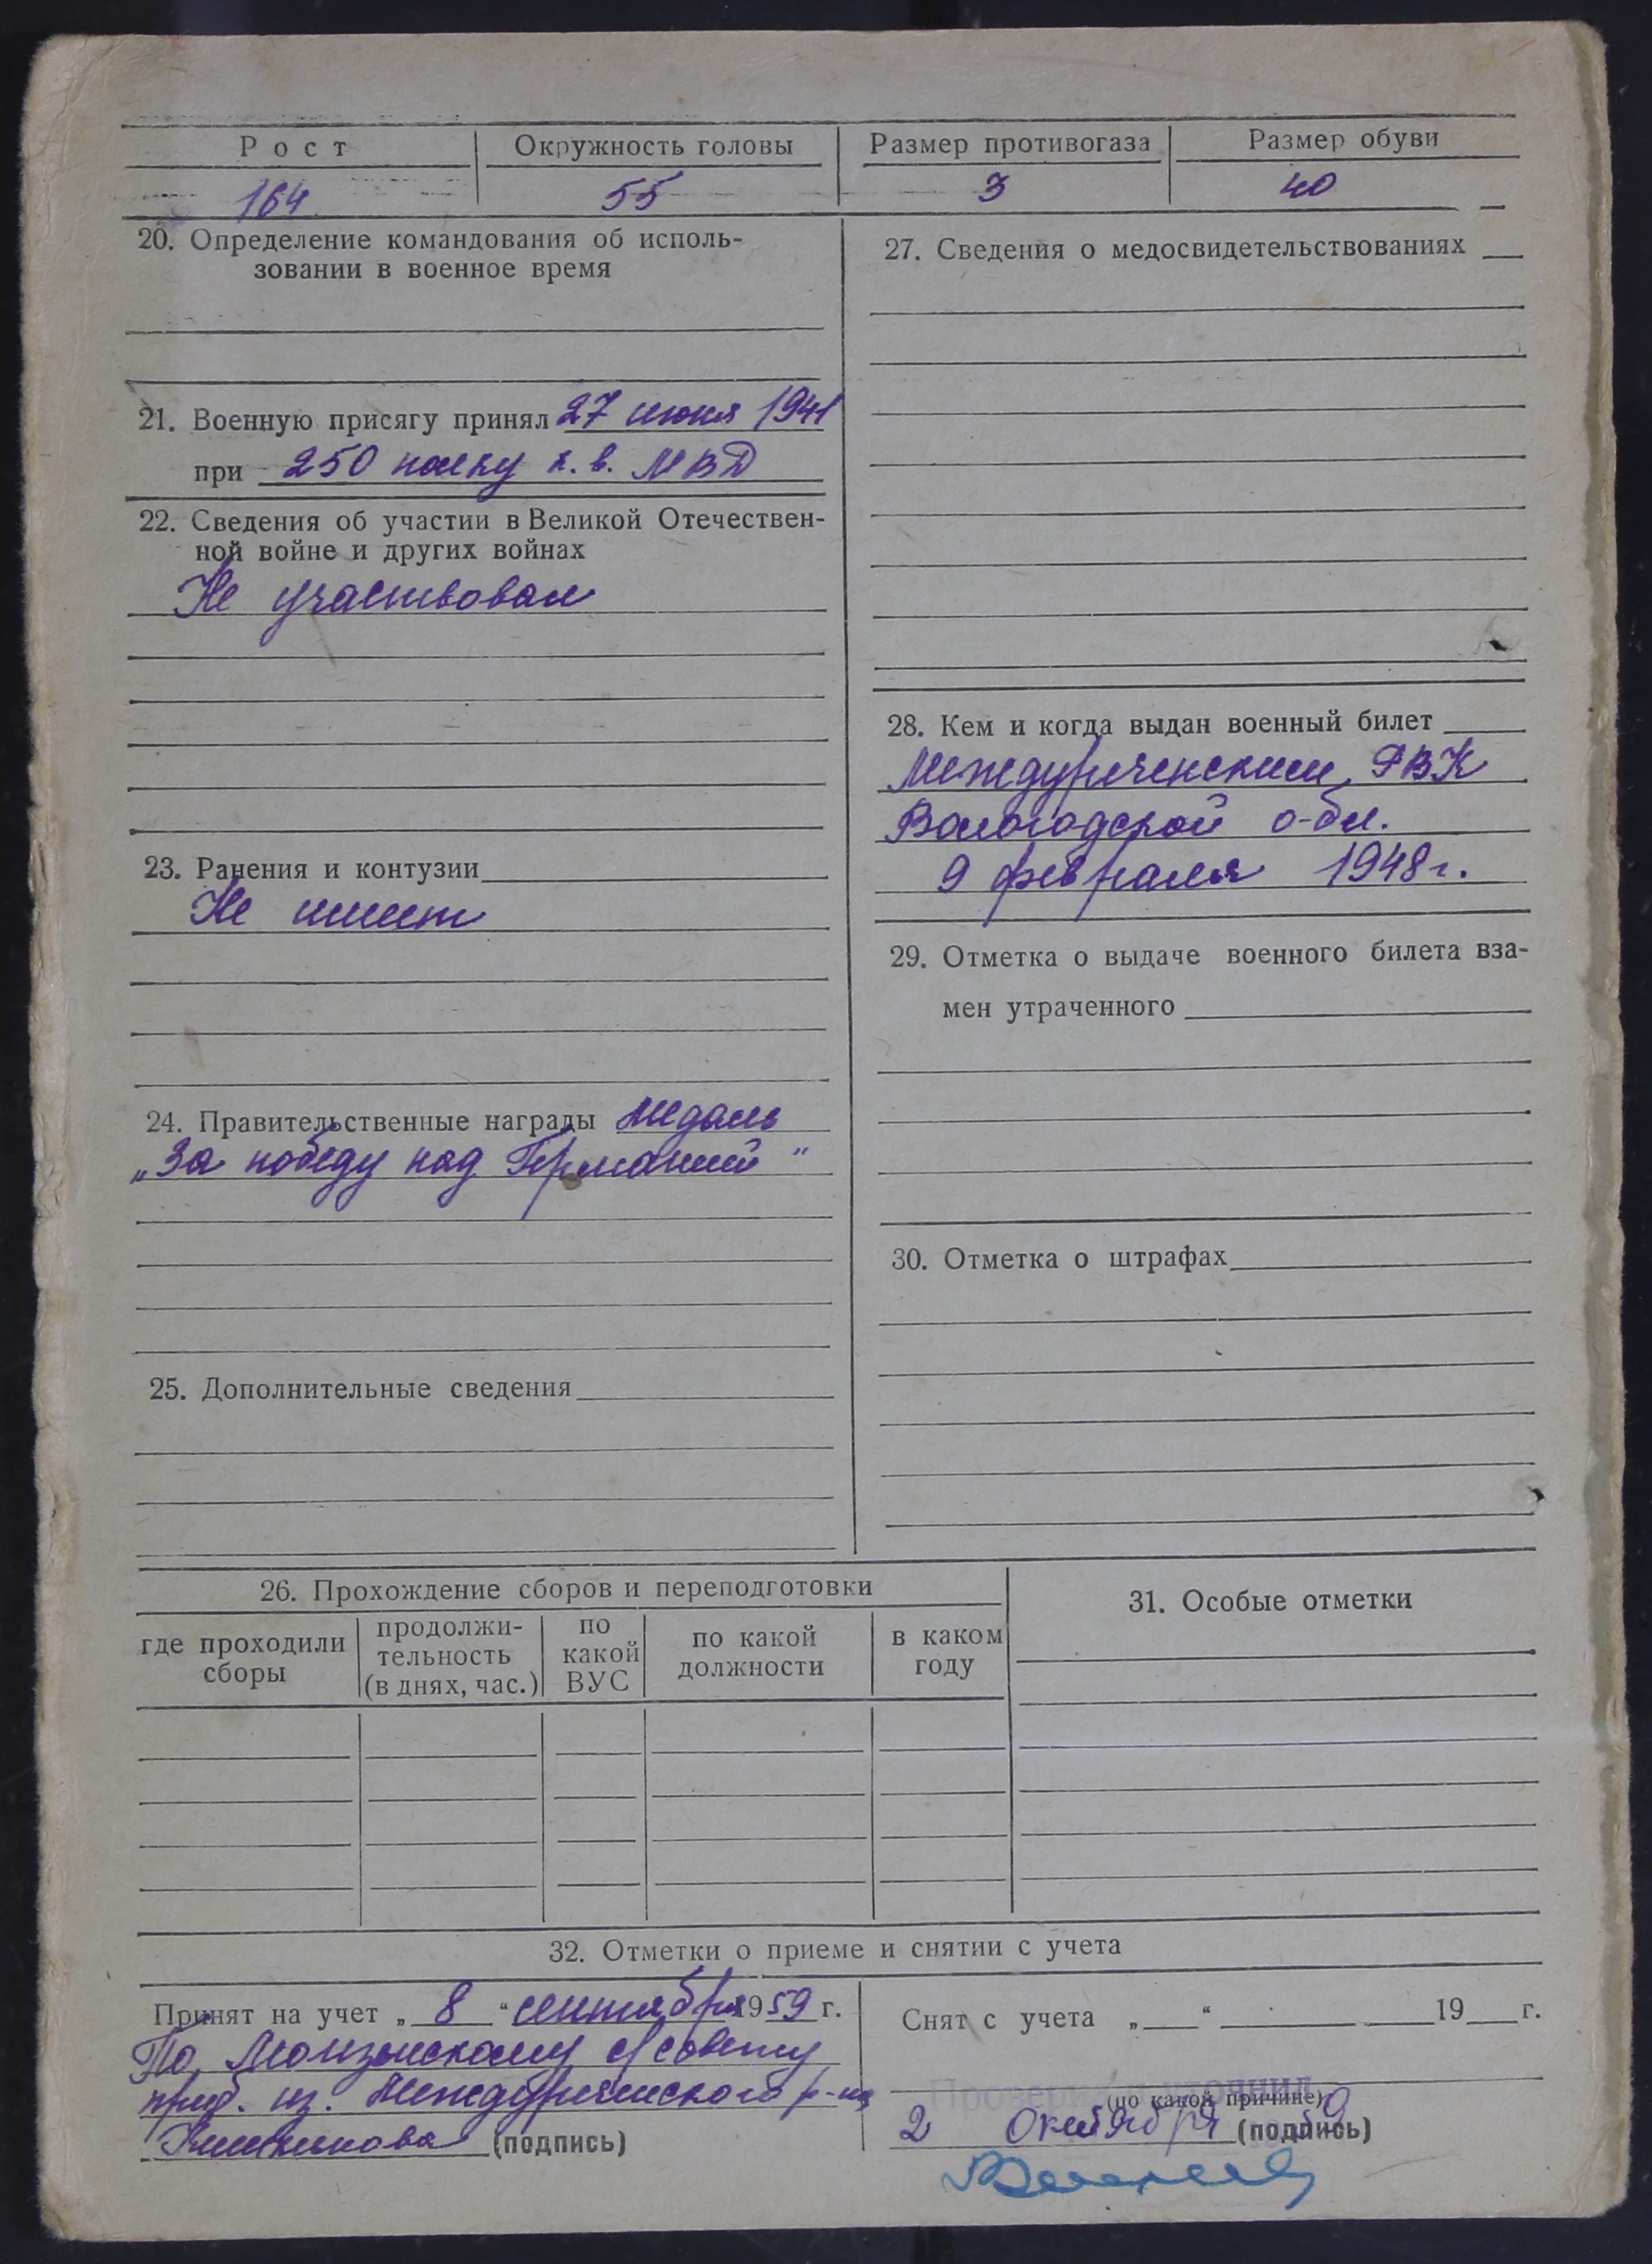 Рост
Окружность головы
Размер противогаза
Размер обуви
164
55
3
40
20. Определение командования об исполь-
зовании в военное время
21. Военную присягу принял 27 июня 1941
при 250 полку к. в. МВД
22. Сведения об участии в Великой Отечествен-
ной войне и других войнах
Не участвовал
23. Ранения и контузии
Не имеет
24. Правительственные награды Медаль
„За победу над Германией“
25. Дополнительные сведения
27. Сведения о медосвидетельствованиях
28. Кем и когда выдан военный билет
Междуреченским РВК
Вологодской о-бл.
9 февраля 1948 г.
29. Отметка о выдаче военного билета вза-
мен утраченного
30. Отметка о штрафах
26. Прохождение сборов и переподготовки
где проходили
сборы
продолжи-
тельность
(в днях, час.)
по
какой
ВУС
по какой
должности
в каком
году
31. Особые отметки
32. Отметки о приеме и снятии с учета
Принят на учет „8“ сентября 1959 г.
По Монзенскому с/совету
приб. из. Междуреченского р-на
(подпись)
Снят с учета „ “ 19 г.
(по какой причине)
2 Октября 59
(подпись)